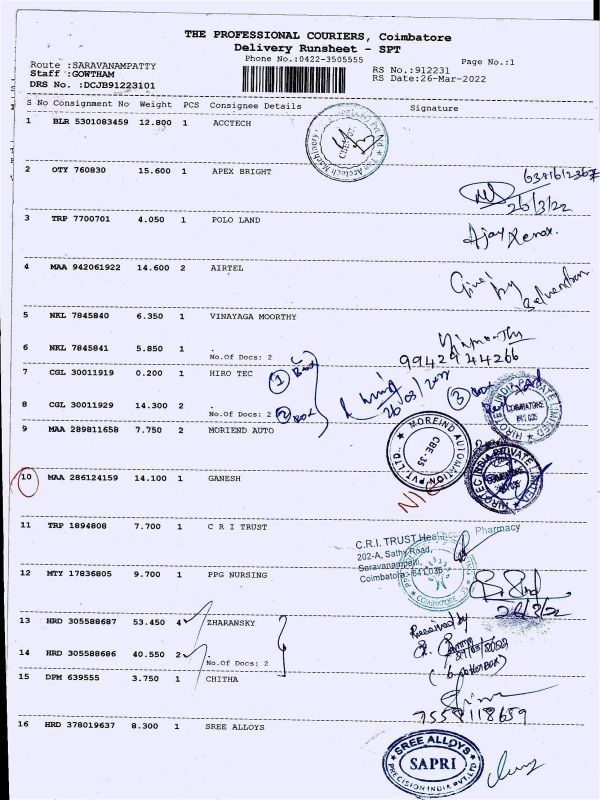 THE PROFESSIONAL COURIERS, Coimbatore
Delivery Runsheet - SPT
Phone No.:0422-3505555
Page No.:1
Route :SARAVANAMPATTY
RS No.:912231
Staff :GOWTHAM
RS Date:26-Mar-2022
DRS No. :DCJB91223101
S No Consignment No Weight PCS Consignee Details Signature
1 BLR 5301083459 12.800 1 ACCTECH
2 OTY 760830 15.600 1 APEX BRIGHT
26/3/22
3 TRP 7700701 4.050 1 POLO LAND
Ajay Xenox.
4 MAA 942061922 14.600 2 AIRTEL
by
5 NKL 7845840 6.350 1 VINAYAGA MOORTHY
6 NKL 7845841 5.850 1
No.Of Docs: 2
9942944266
7 CGL 30011919 0.200 1 HIRO TEC
1 Box
3 Box
8 CGL 30011929 14.300 2
No.Of Docs: 2
2 Box
HIROTEC INDIA PRIVATE LIMITED
COIMBATORE
641 035
9 MAA 289811658 7.750 2 MORIEND AUTO
MOREIND AUTOMATION PVT. LTD.
CBE-35
HIROTEC INDIA PRIVATE LIMITED
10 MAA 286124159 14.100 1 GANESH
11 TRP 1894808 7.700 1 C R I TRUST
C.R.I. TRUST Health Pharmacy
202-A, Sathy Road,
Saravanampatti,
Coimbatore - 641 035
12 MTY 17836805 9.700 1 PPG NURSING
26/3/22
13 HRD 305588687 53.450 4 ZHARANSKY
Received by
14 HRD 305588686 40.550 2
No.Of Docs: 2
15 DPM 639555 3.750 1 CHITHA
7558118659
16 HRD 378019637 8.300 1 SREE ALLOYS
SREE ALLOYS
SAPRI
PRECISION INDIA PVT.LTD